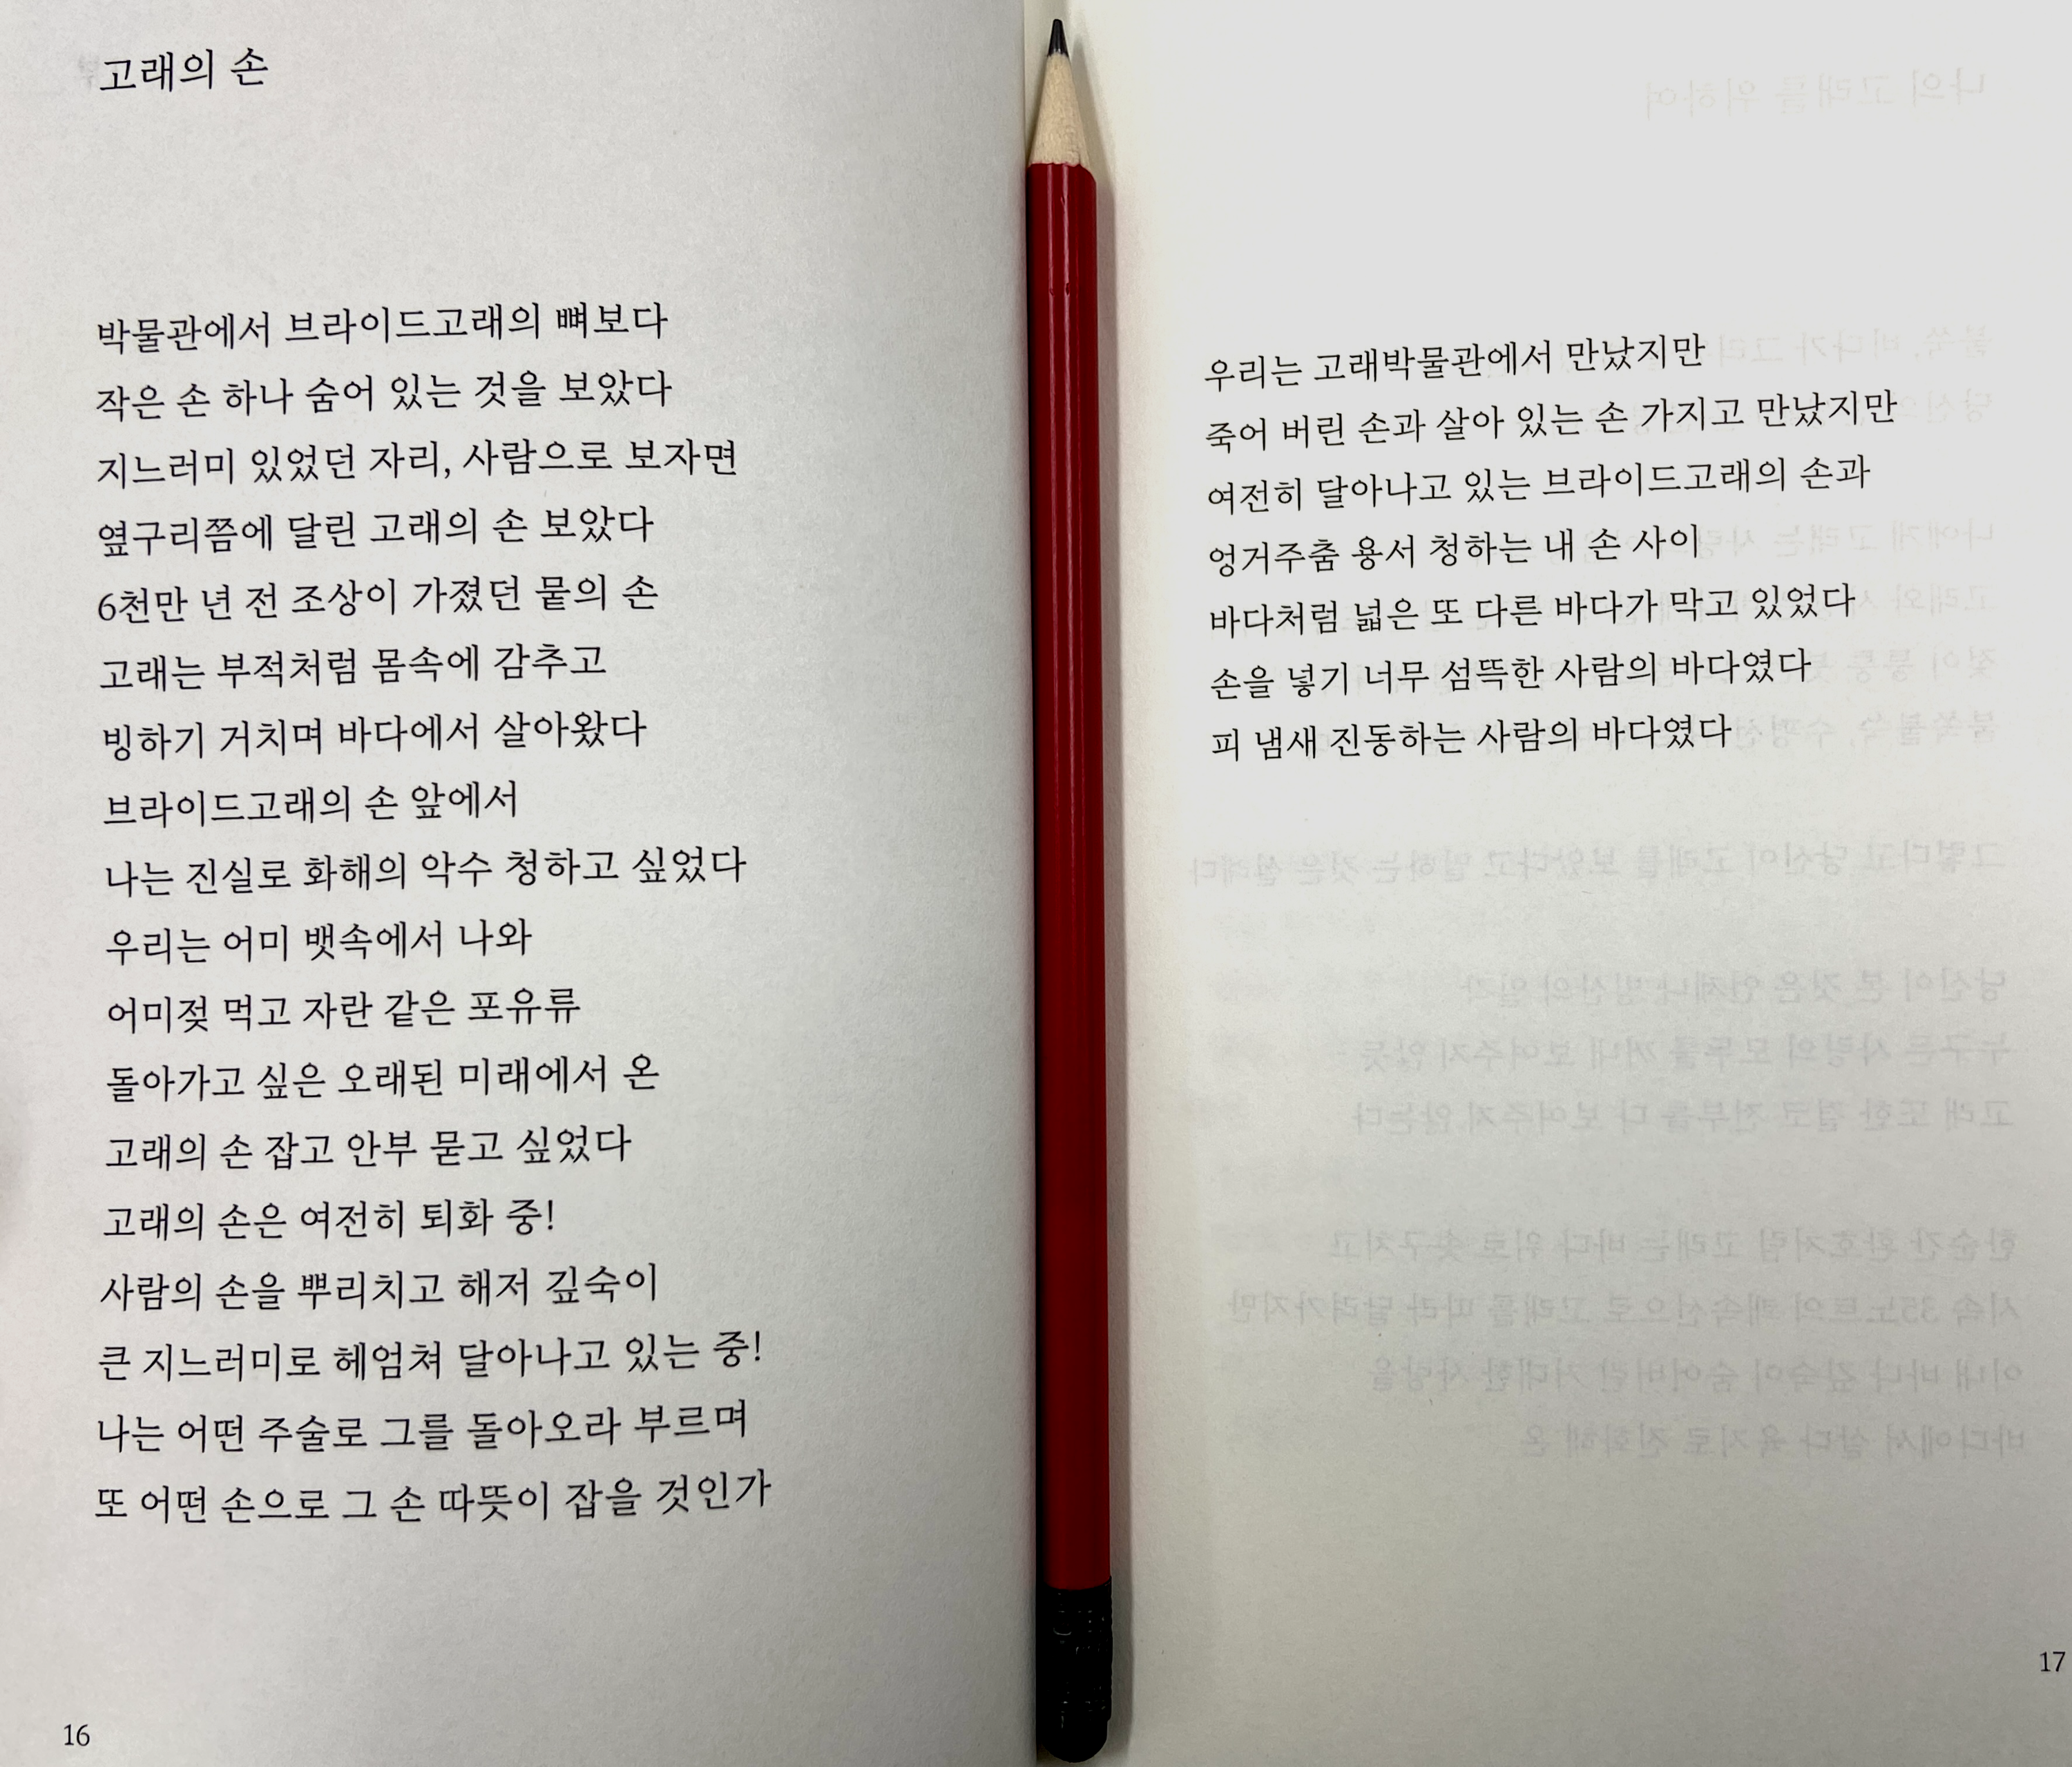 고래의 손
박물관에서 브라이드고래의 뼈보다
작은 손 하나 숨어 있는 것을 보았다
지느러미 있었던 자리, 사람으로 보자면
옆구리쯤에 달린 고래의 손 보았다
6천만 년 전 조상이 가졌던 뭍의 손
고래는 부적처럼 몸속에 감추고
빙하기 거치며 바다에서 살아왔다
브라이드고래의 손 앞에서
나는 진실로 화해의 악수 청하고 싶었다
우리는 어미 뱃속에서 나와
어미젖 먹고 자란 같은 포유류
돌아가고 싶은 오래된 미래에서 온
고래의 손 잡고 안부 묻고 싶었다
고래의 손은 여전히 퇴화 중!
사람의 손을 뿌리치고 해저 깊숙이
큰 지느러미로 헤엄쳐 달아나고 있는 중!
나는 어떤 주술로 그를 돌아오라 부르며
또 어떤 손으로 그 손 따뜻이 잡을 것인가
16
우리는 고래박물관에서 만났지만
죽어 버린 손과 살아 있는 손 가지고 만났지만
여전히 달아나고 있는 브라이드고래의 손과
엉거주춤 용서 청하는 내 손 사이
바다처럼 넓은 또 다른 바다가 막고 있었다
손을 넣기 너무 섬뜩한 사람의 바다였다
피 냄새 진동하는 사람의 바다였다
17